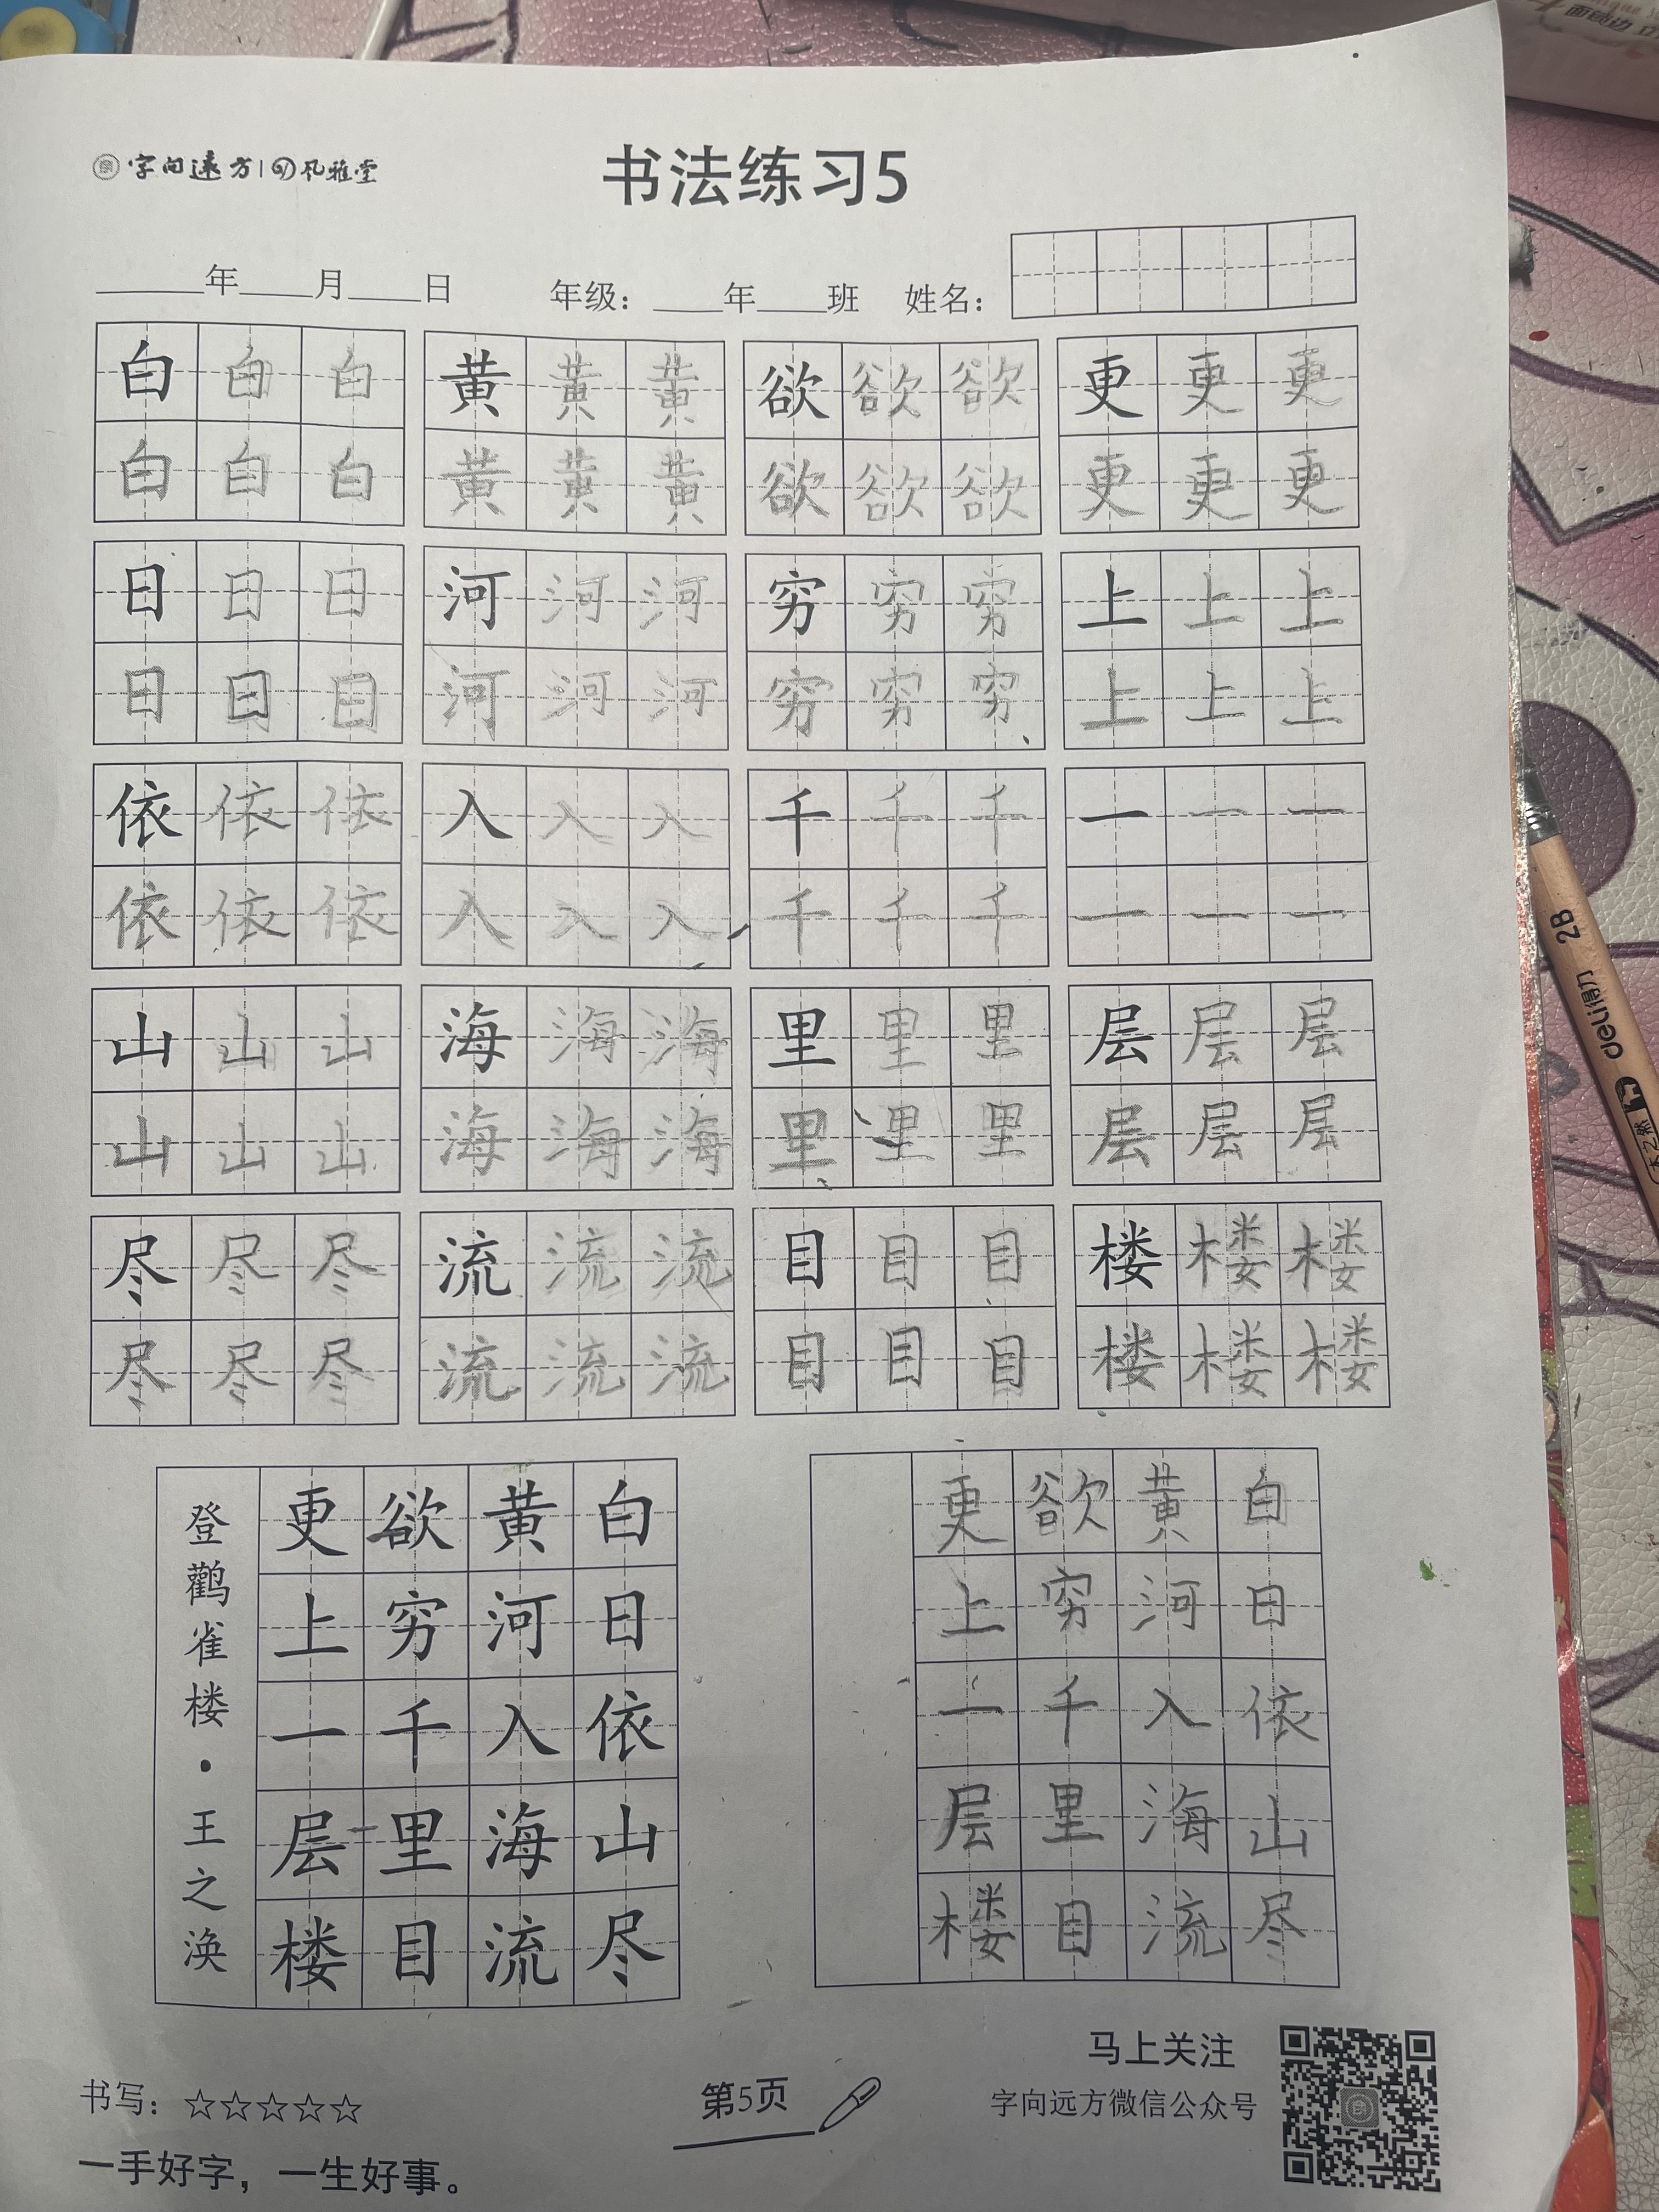 字向远方 风雅堂
书法练习5
年 月 日 年级: 年 班 姓名:
白白白 黄黄黄 欲欲欲 更更更
白白白 黄黄黄 欲欲欲 更更更
日日日 河河河 穷穷穷 上上上
日日日 河河河 穷穷穷 上上上
依依依 入入入 千千千 一一一
依依依 入入入 千千千 一一一
山山山 海海海 里里里 层层层
山山山 海海海 里里里 层层层
尽尽尽 流流流 目目目 楼楼楼
尽尽尽 流流流 目目目 楼楼楼
白日依山尽
黄河入海流
欲穷千里目
更上一层楼
登鹳雀楼·王之涣
白日依山尽
黄河入海流
欲穷千里目
更上一层楼
书写:☆☆☆☆☆
一手好字,一生好事。
第5页
马上关注
字向远方微信公众号
2B
deli得力